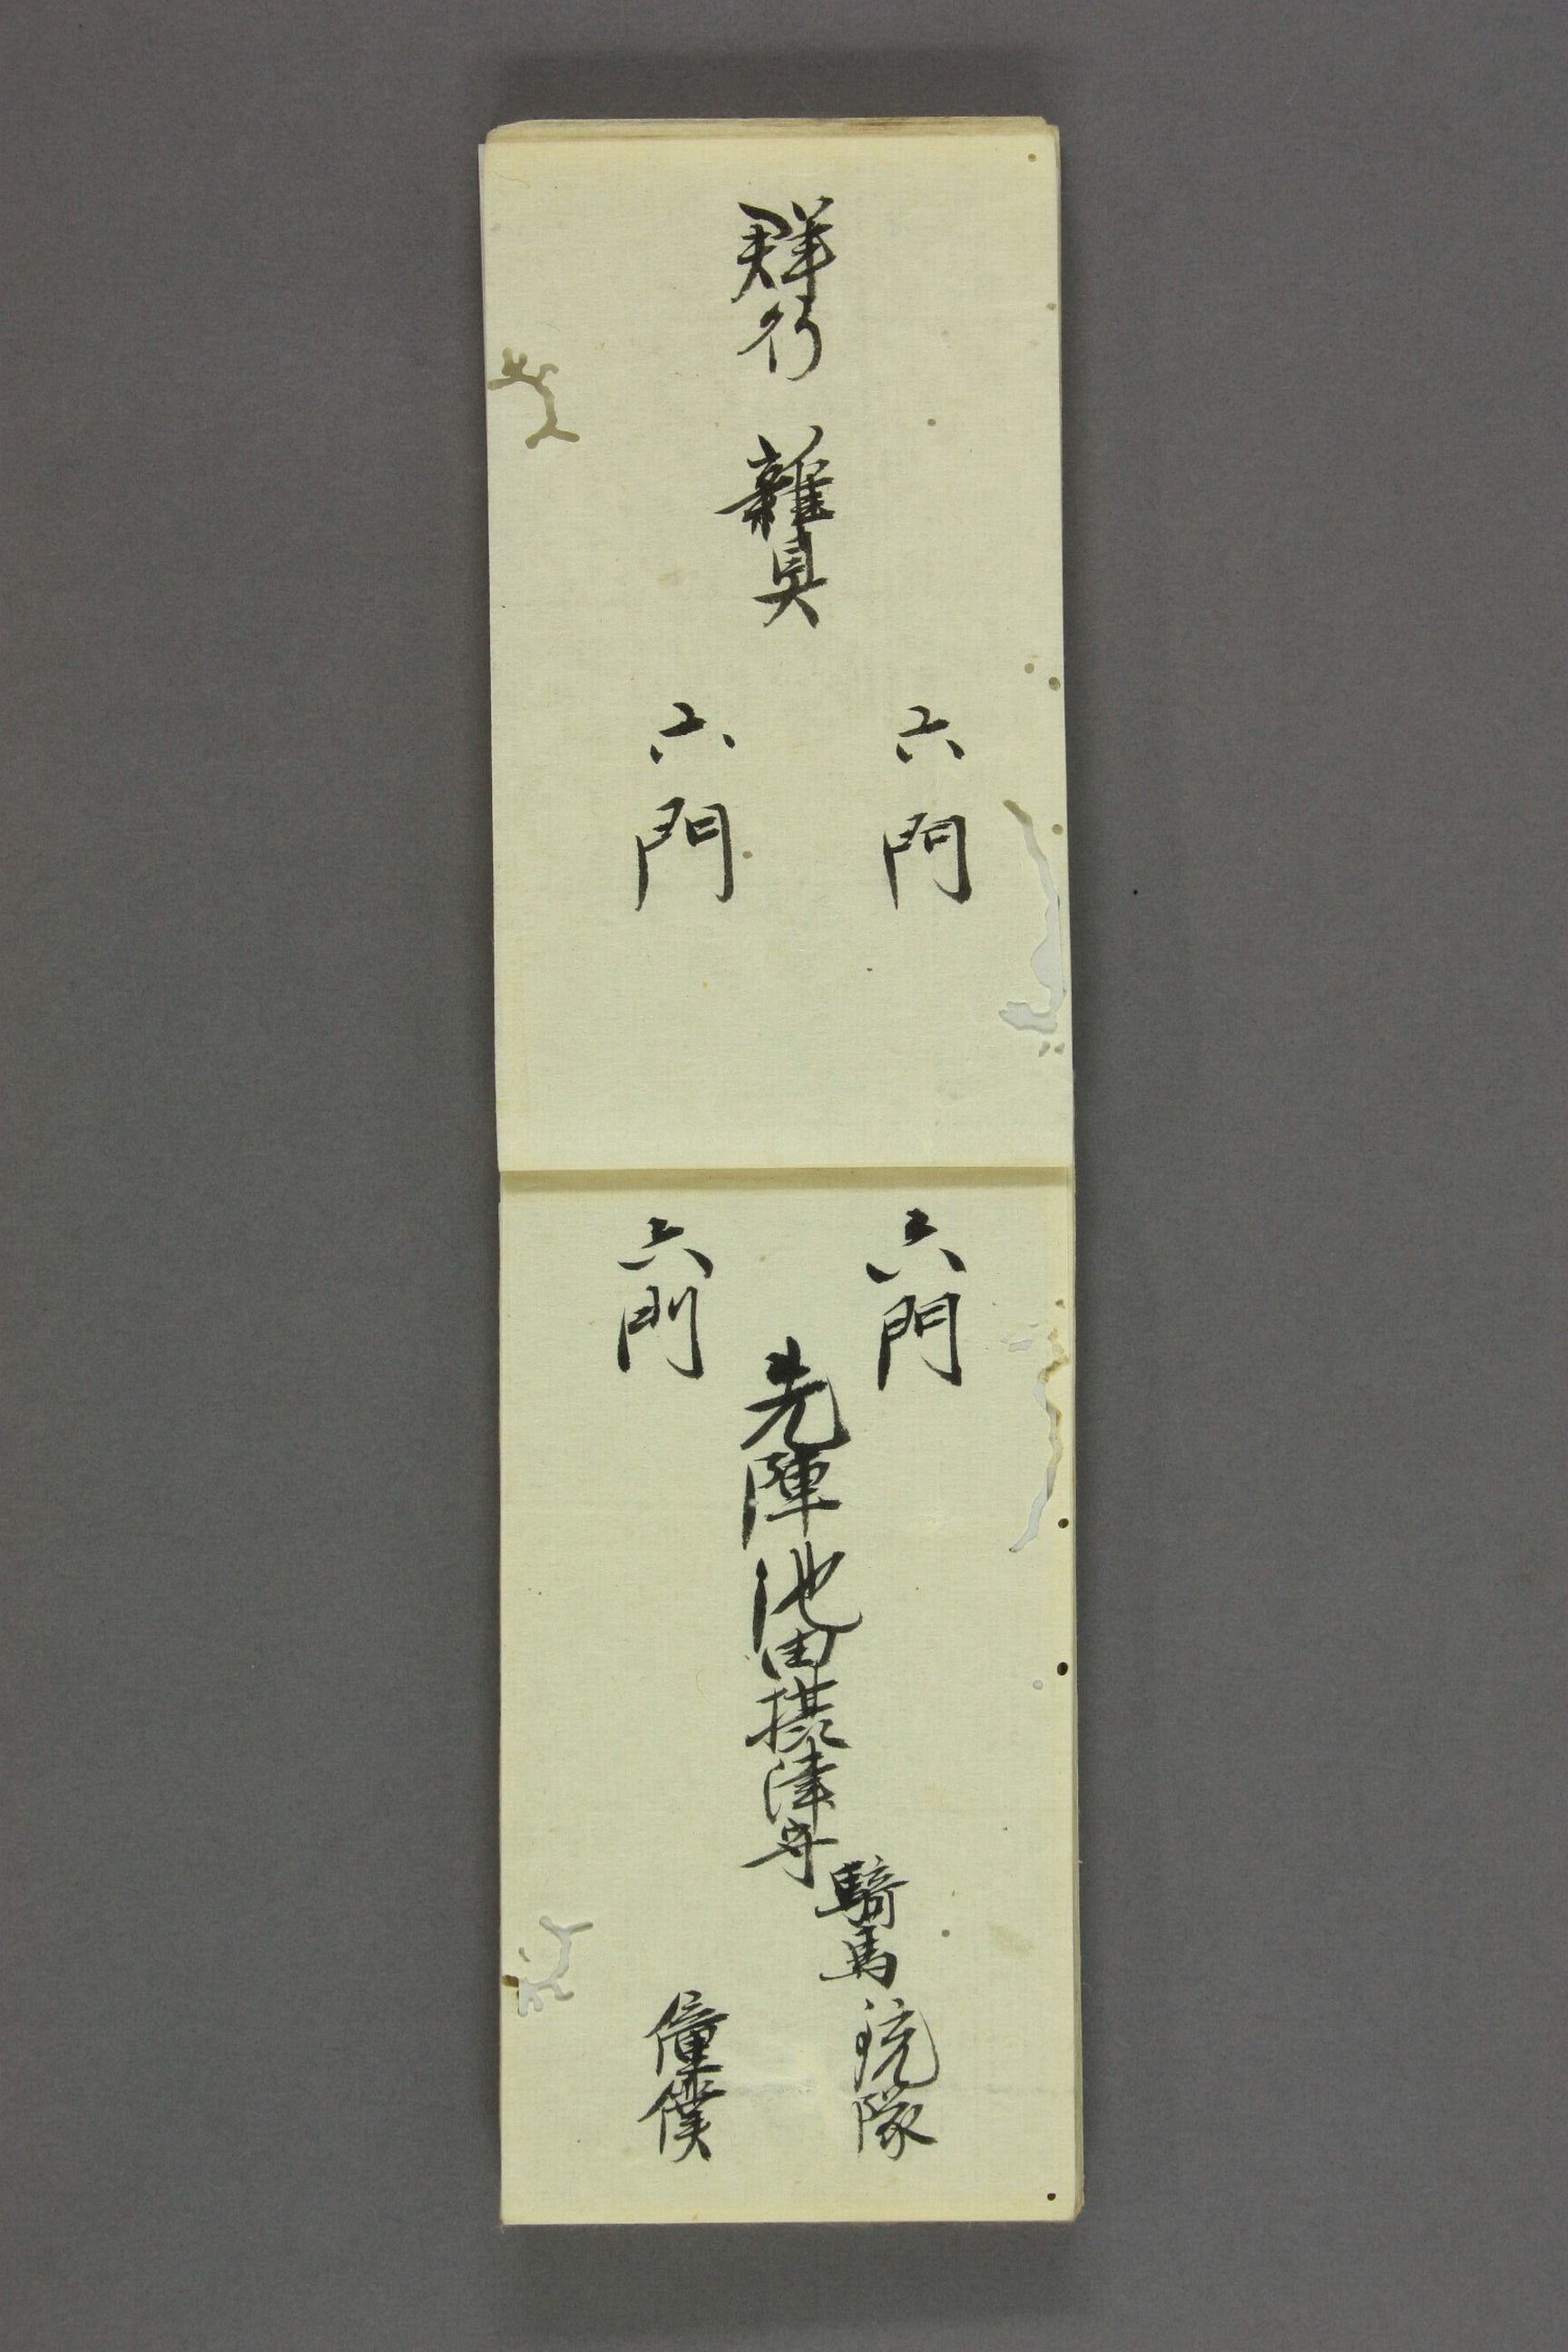 群行
雜具
六門
六門
六門
六門
先陣池田摂津守
騎馬
銃隊
僮僕